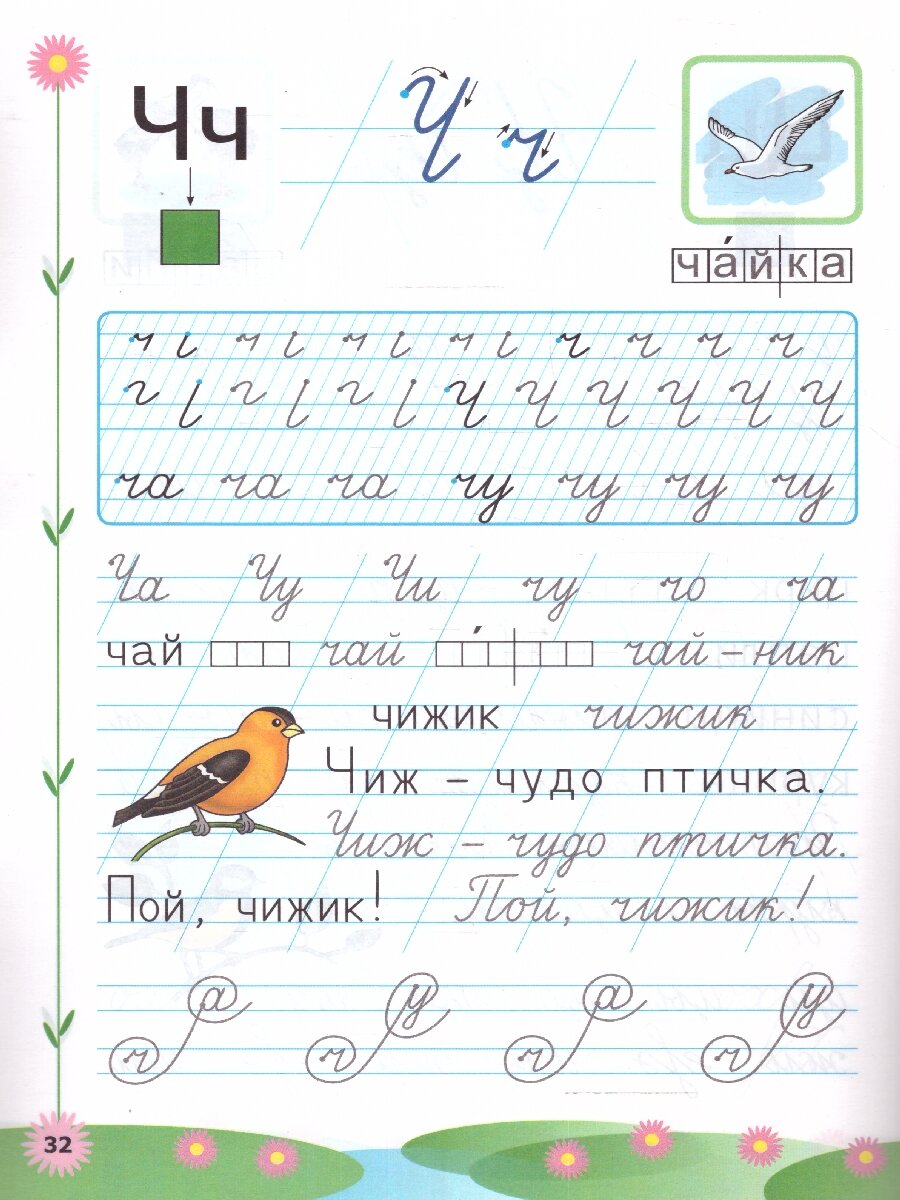 Чч Ч ч
ча́йка
ч ч ч ч ч ч ч ч
Ч Ч Ч Ч Ч Ч Ч Ч Ч
ча ча ча чу чу чу чу
Ча Чу Чи чу чо ча
чай чай чай – ник
чижик чижик
Чиж – чудо птичка.
Чиж – чудо птичка.
Пой, чижик! Пой, чижик!
а у а у
ч ч ч ч
32